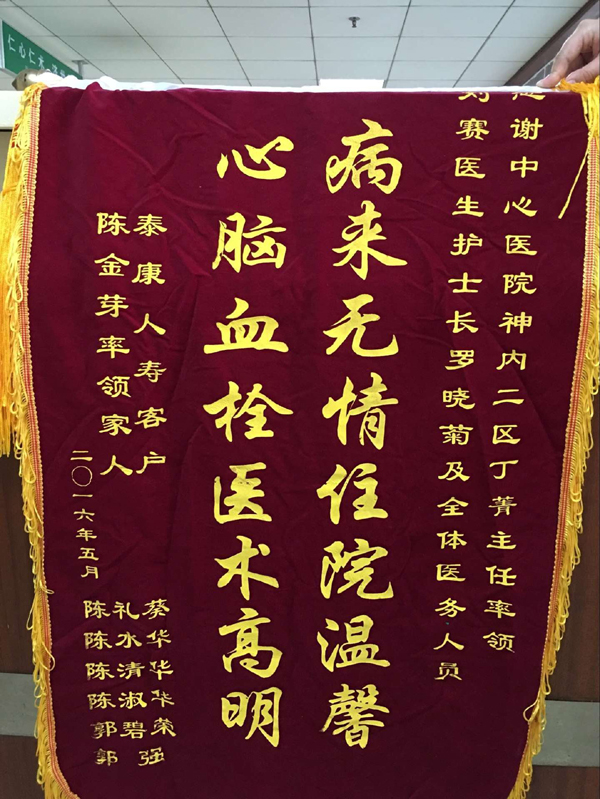 仁心仁术
感谢中心医院神内二区丁菁主任率领
刘赛医生护士长罗晓菊及全体医务人员
病来无情住院温馨
心脑血栓医术高明
泰康人寿客户
陈金芽率领家人
二〇一六年五月
陈礼葵
陈水华
陈清华
陈淑华
郭碧荣
郭强